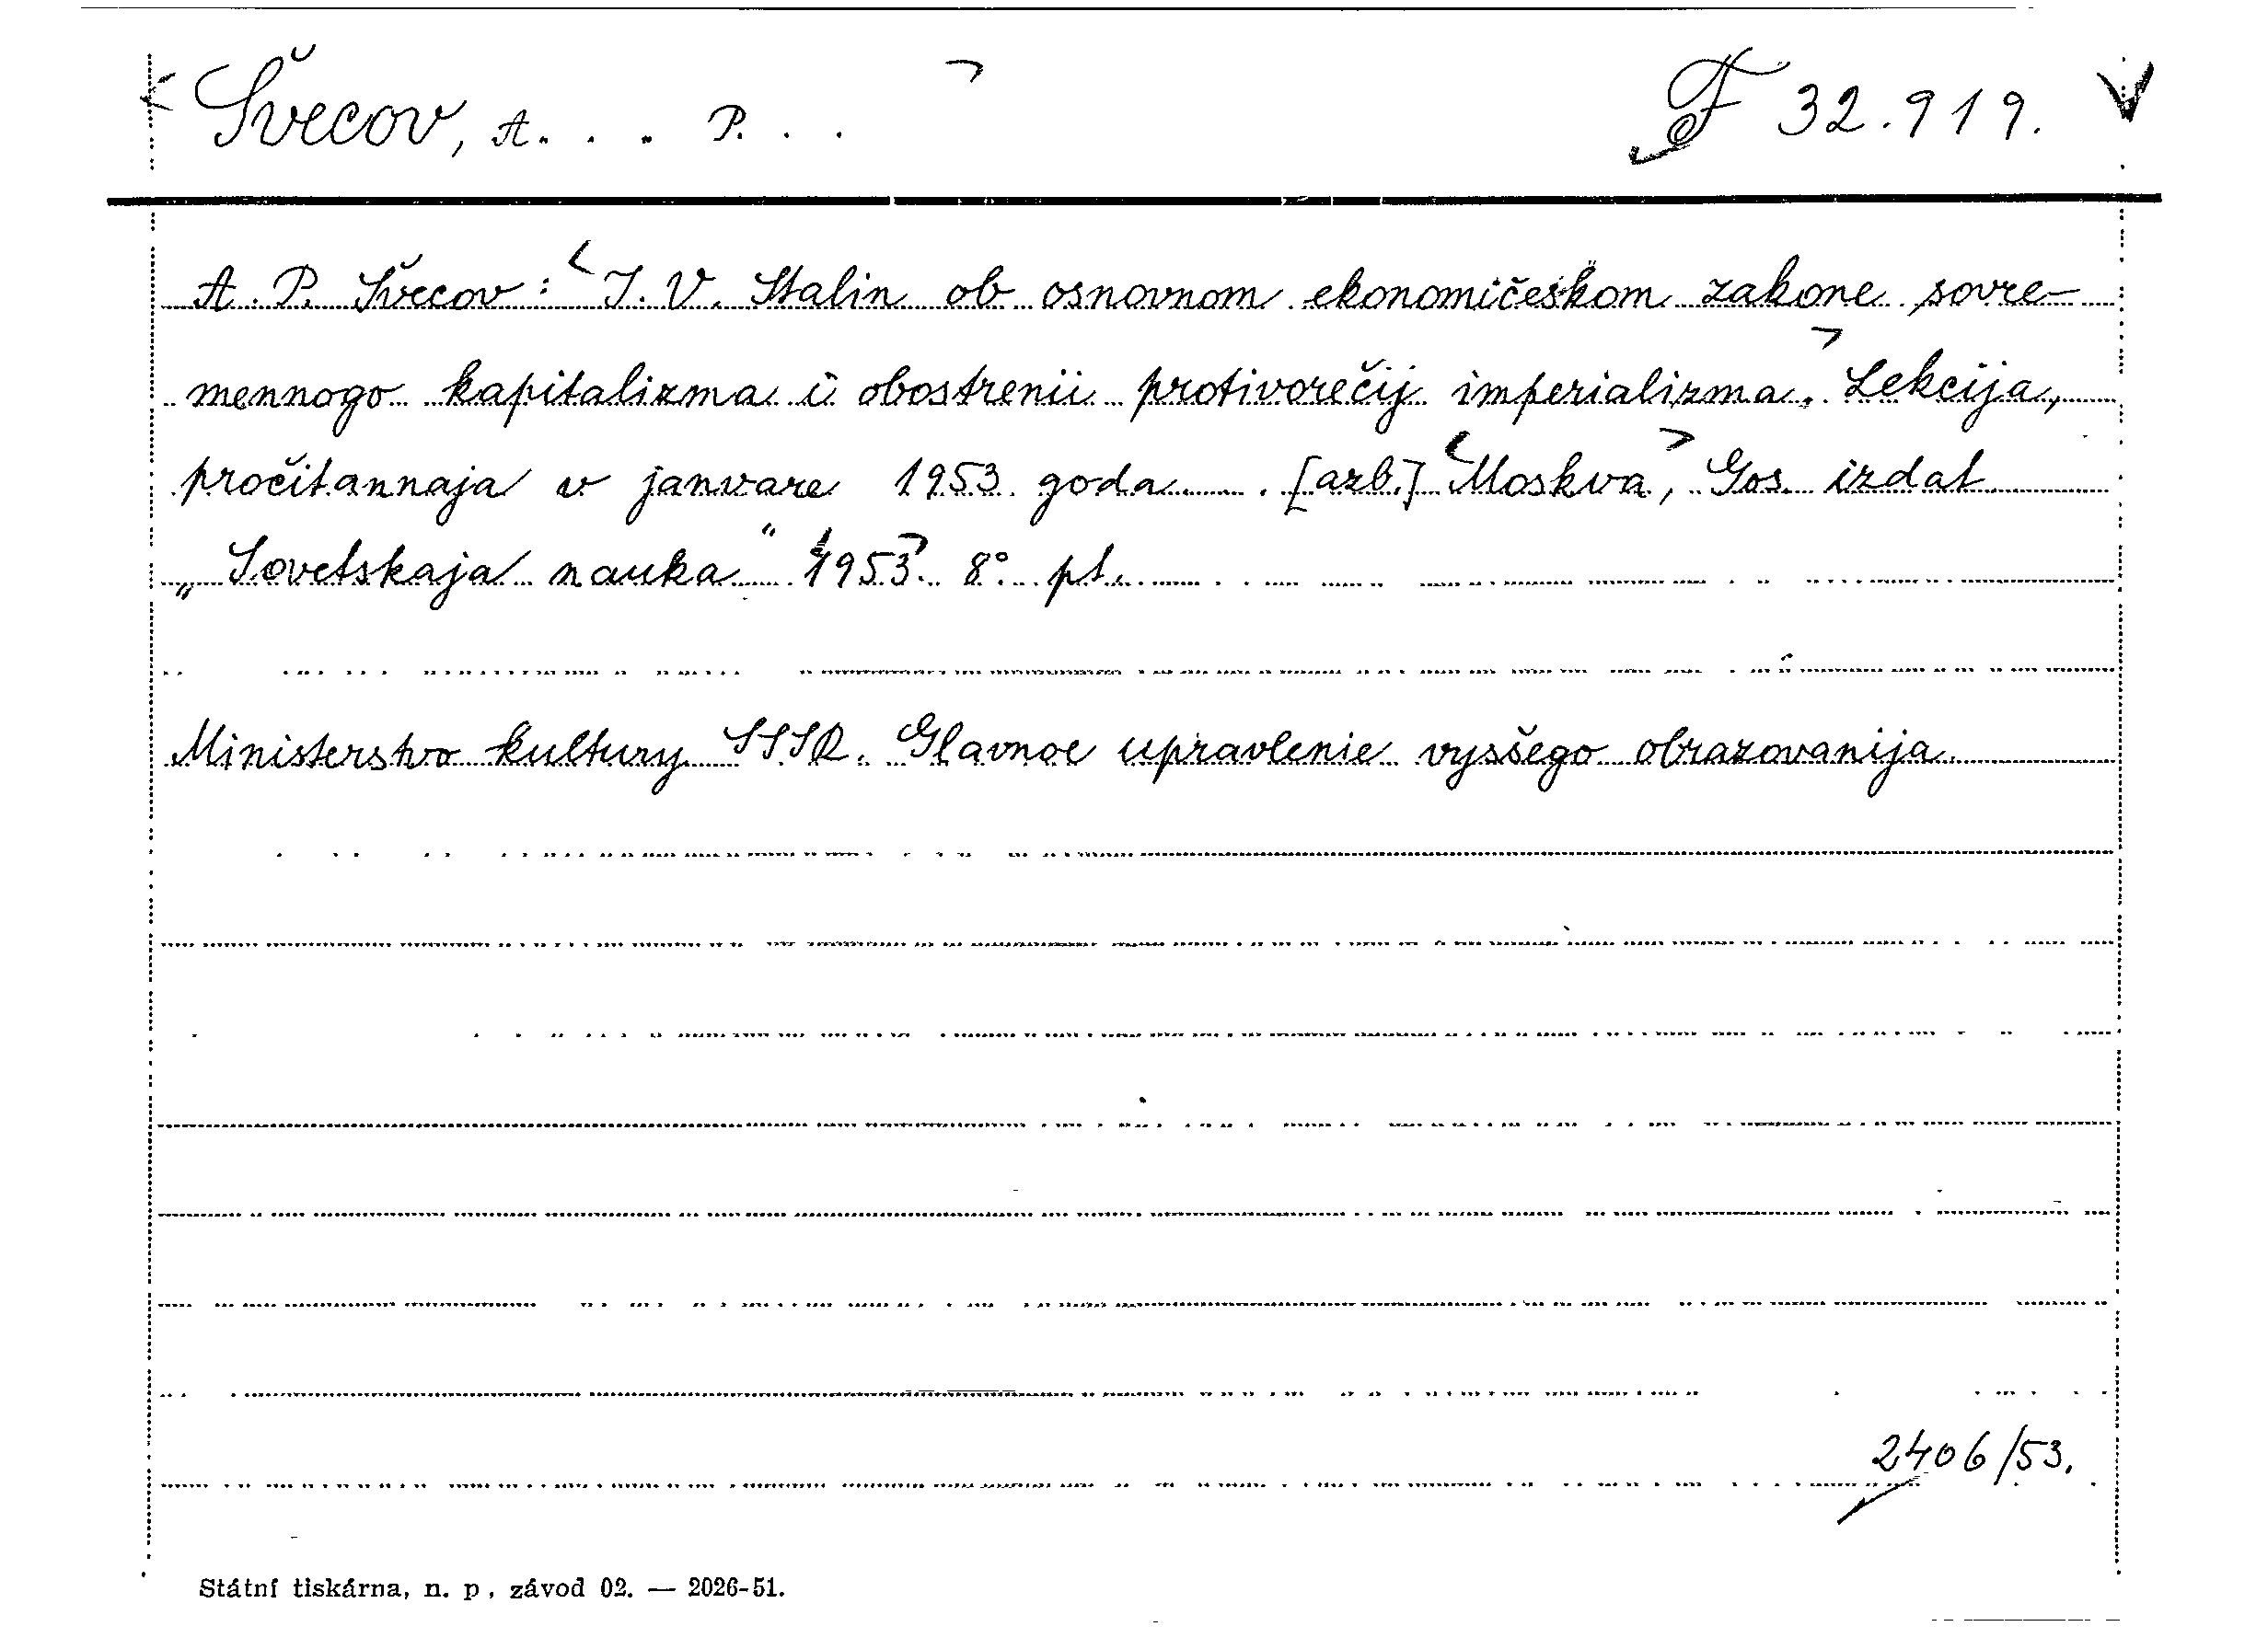 Švecov, A. . . . P. . .
F 32.919.
A. P. Švecov: I. V. Stalin ob osnovnom ekonomičeskom zakone sovre-
mennogo kapitalizma i obostrenii protivorečij imperializma. Lekcija,
pročitannaja v janvare 1953 goda . [azb.] Moskva, Gos. izdat
„Sovetskaja nauka" 1953. 8° pt.
Ministerstvo kultury SSSR. Glavnoe upravlenie vysšego obrazovanija.
2406/53.
Státní tiskárna, n. p., závod 02. — 2026-51.